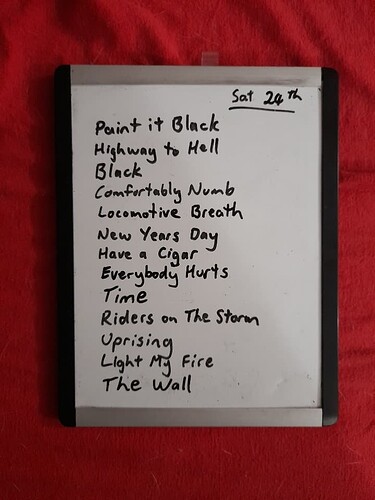 Sat 24th
Paint it Black
Highway to Hell
Black
Comfortably Numb
Locomotive Breath
New Years Day
Have a Cigar
Everybody Hurts
Time
Riders on The Storm
Uprising
Light My Fire
The Wall